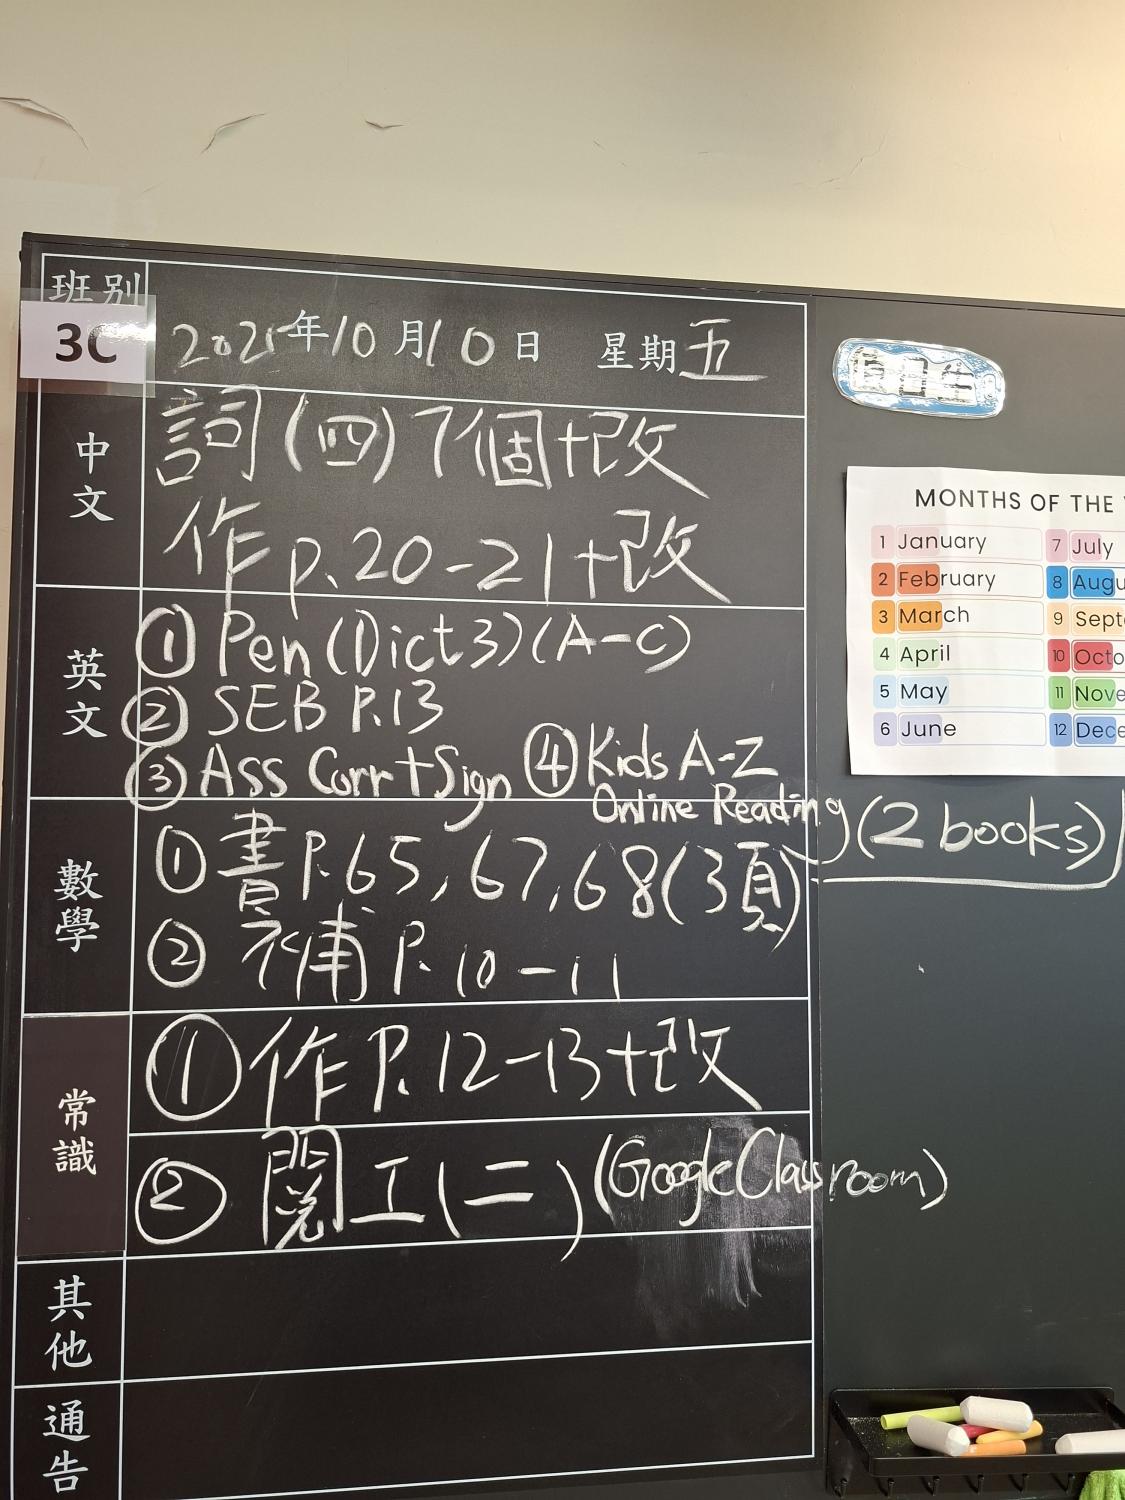 班別
3C
2025年10月10日 星期五
中文
詞(四)7個+改
作p.20-21+改
英文
① Pen (Dict 3) (A-C)
② SEB P.13
③ Ass Corr+Sign ④ Kids A-Z
Online Reading (2 books)
數學
① 書P.65, 67, 68(3頁)
② 補P.10-11
常識
① 作P.12-13+改
② 閱工(二) (Google Classroom)
其他
通告
值日生
MONTHS OF THE
1 January
2 February
3 March
4 April
5 May
6 June
7 July
8 Augu
9 Sept
10 Octo
11 Nove
12 Dece